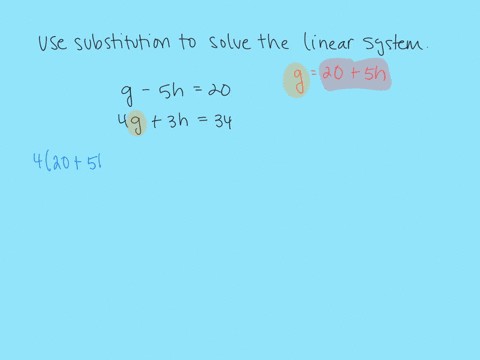 use substitution to solve the linear system.
g = 20 + 5h
g - 5h = 20
4g + 3h = 34
4(20 + 5